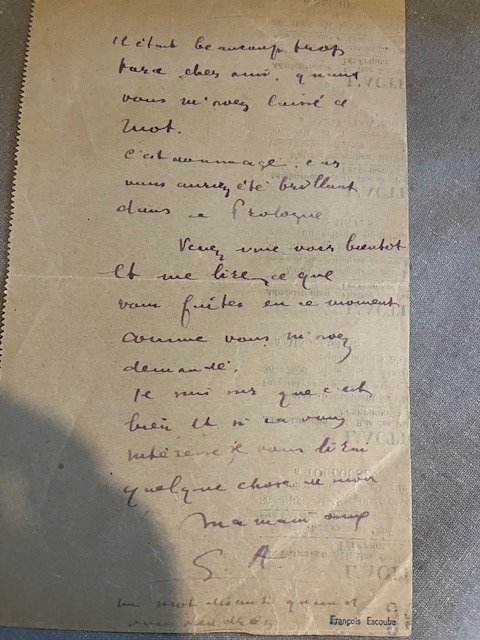 Il était beaucoup trop
tard, cher ami, quand
vous m'avez laissé ce
mot.
C'est dommage, car
vous auriez été brillant
dans ce Prologue
Venez me voir bientôt
Et me lire ce que
vous faites en ce moment
comme vous m'avez
demandé.
Je suis sûr que c'est
bien Et si ça vous
intéresse je vous lirai
quelque chose de moi
Ma main amie
G. A.
un mot disant quand
vous viendrez
François Escoube